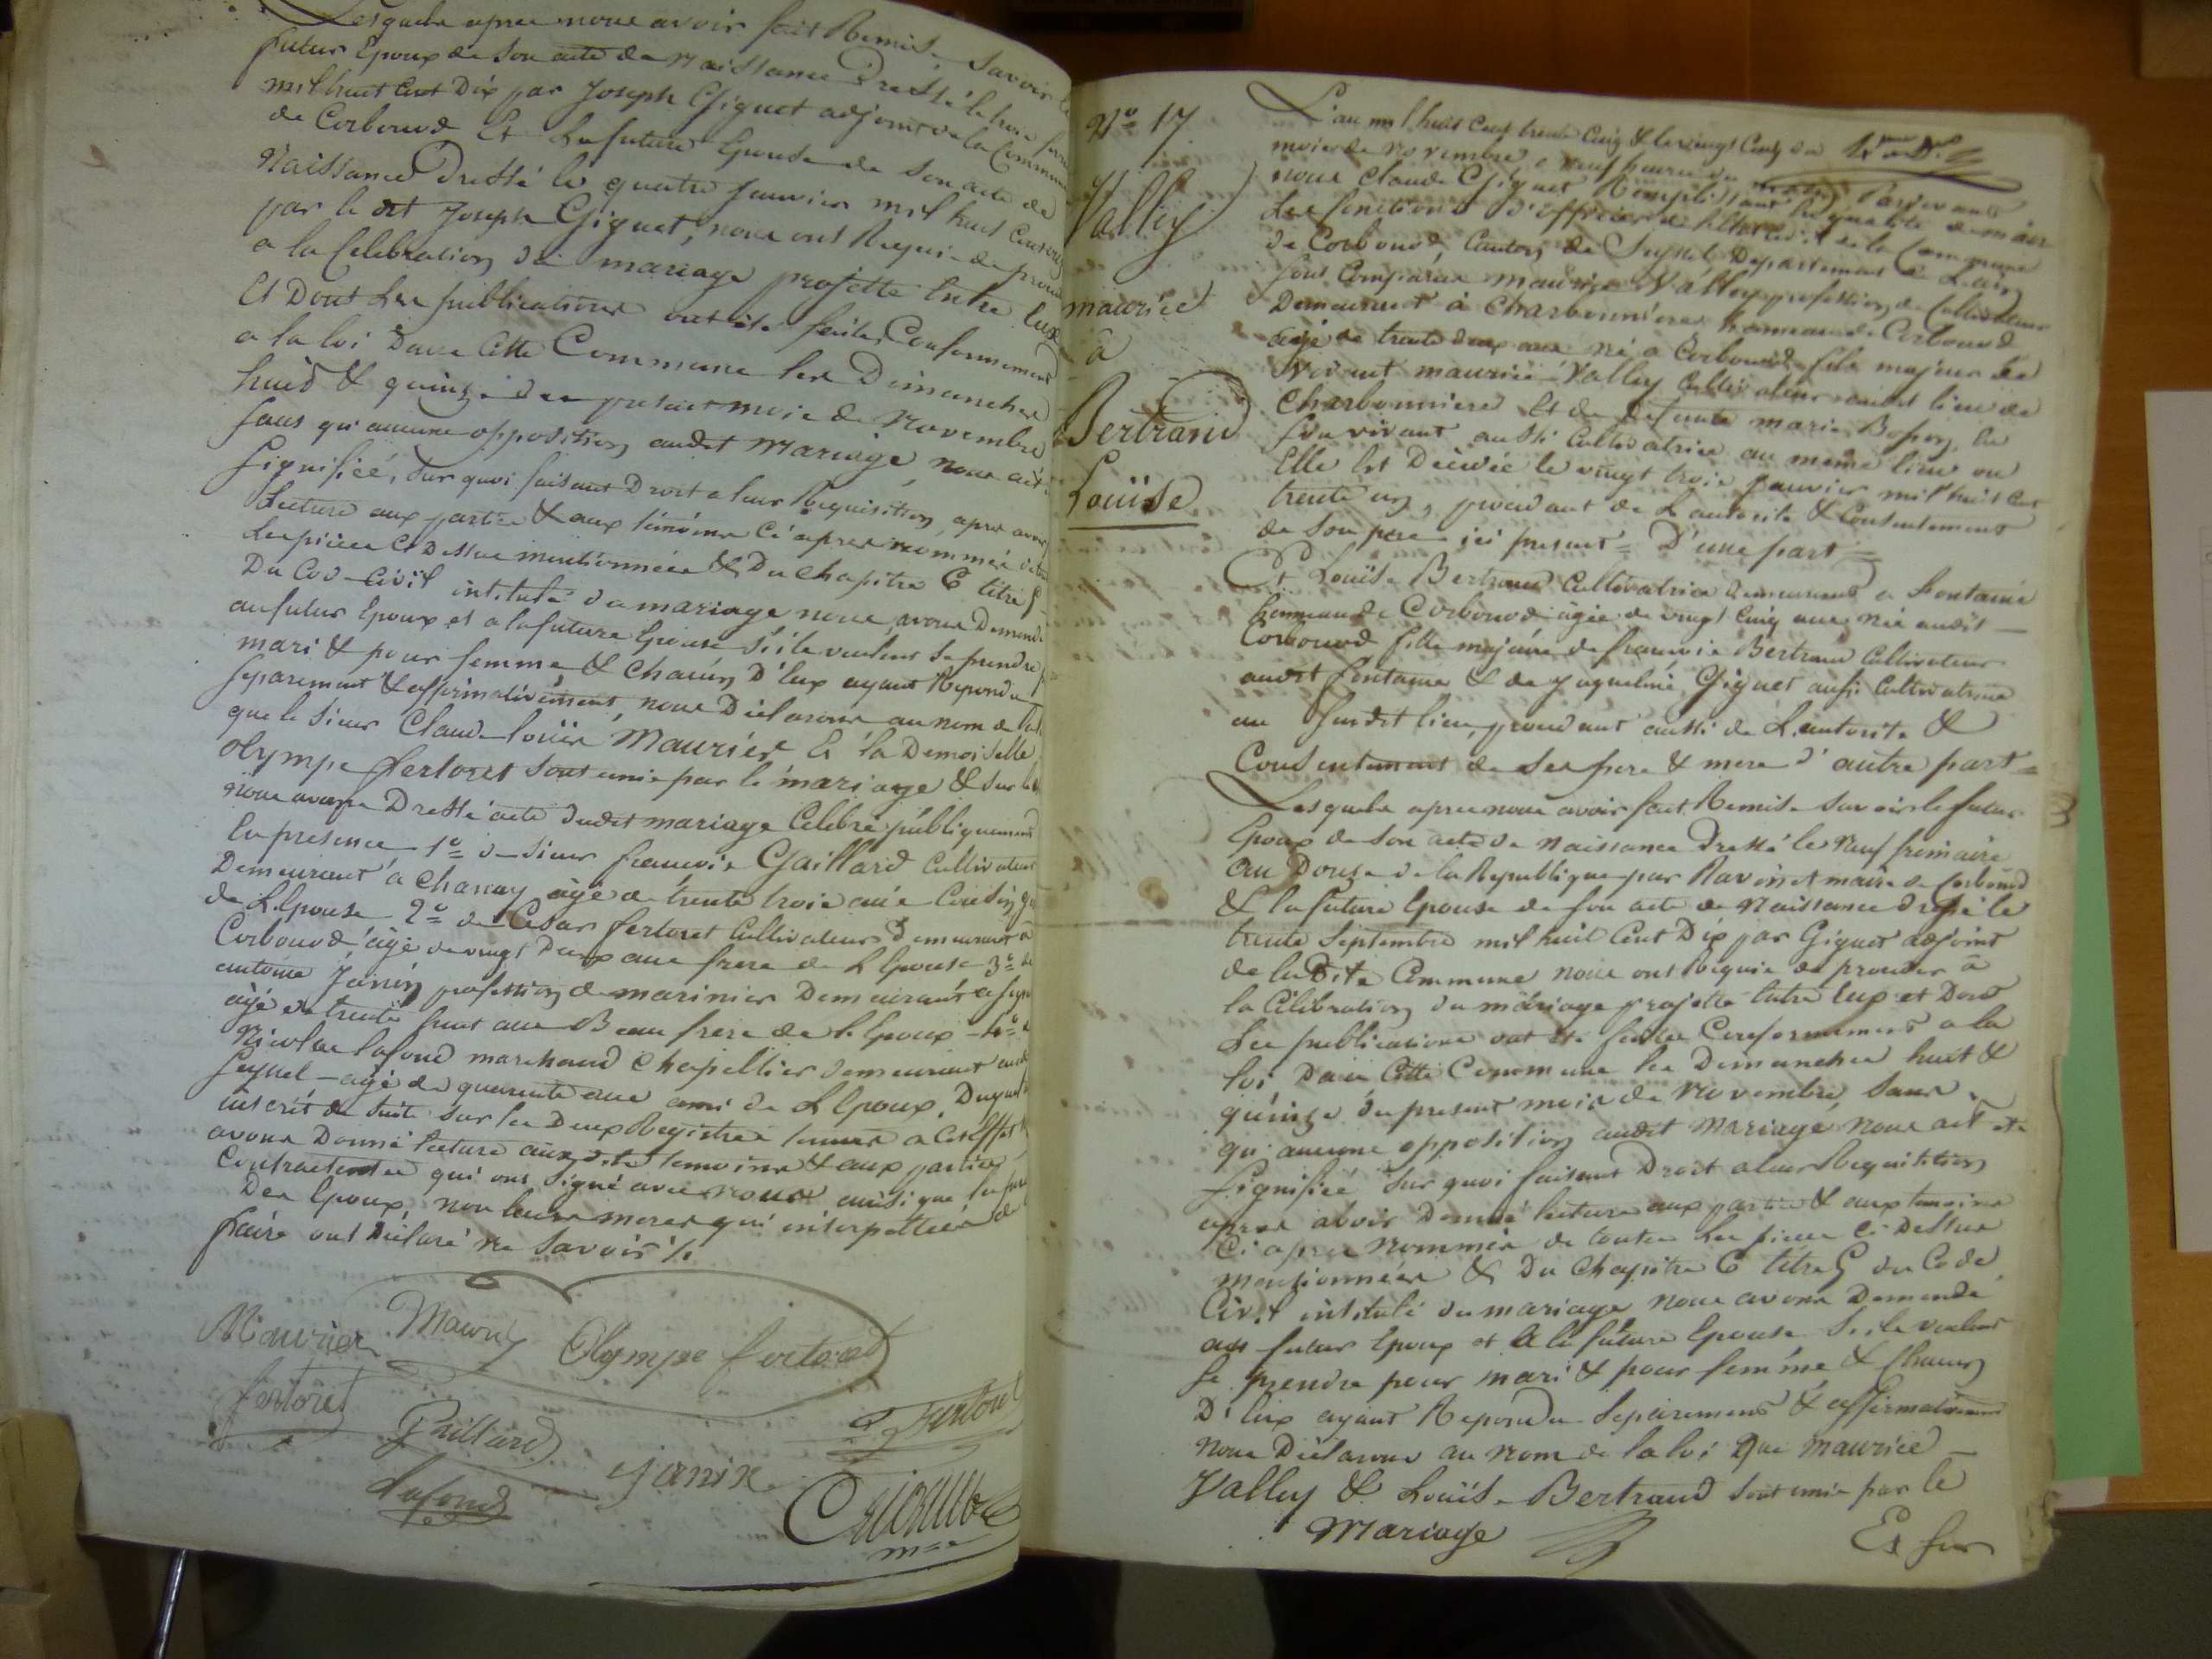 Lesquels apres nous avoir fait Remise, Savoir le
futur Epoux de Son acte de Naissance Dressé le
mil huit Cent Dix par Joseph Giguet adjoint de la Commune
de Corbonod Et La future Epouse de Son acte de
Naissance Dressé le quatre Janvier mil huit Cent
par le dit Joseph Giguet, nous ont Requis de
a la Celebration de mariage projetté Entre Eux
Et Dont Les publications ont été faites Conformement
a la loi Dans Cette Commune les Dimanches
huit & quinze du présent mois de Novembre
Sans qu'aucune opposition audit Mariage, nous ait
Signifiée, Sur quoi faisant Droit a leur Requisition, apres avoir
Lecture aux parties & aux témoins Ci apres nommés
Les pièces Ci Dessus mentionnées & Du Chapitre 6 titre 5
Du Code Civil intitulé du mariage nous avons Demandé
au futur Epoux et a la future Epouse S'ils veulent Se prendre
mari & pour femme, & Chacun D'Eux ayant Repondu
Separement & affirmativement, nous Déclarons au nom de la
que le Sieur Claude Louis Maurier Et la Demoiselle
Olympe fertoret Sont unis par le mariage & Sur
nous avons Dressé acte dudit mariage Célébré publiquement
En présence 1º de Sieur françois Gaillard Cultivateur
Demeurant à Chanay agé de trente trois ans Cousin
de L'Epouse 2º de Cesar fertoret Cultivateur Demeurant à
Corbonod, agé de vingt Deux ans frere de L'Epouse 3º de
antoine Janin profession de marinier Demeurant a
agé de trente huit ans Beau frere de l'Epoux 4º
Nicolas lafond marchand Chapellier demeurant
Seyssel agé de quarente ans ami de L'Epoux.
inscrit de Suite Sur les Deux Registres tenues a Cet Effet
avons Donné lecture aux dits temoins & aux parties
Contractantes qui ont Signé avec nous ainsi que
Des Epoux, non leurs meres qui interpellées de
faire ont Déclaré ne Savoir ./.
Maurier Maurier Olympe fertoret
fertoret Gaillard fertoret
lafond Janin
Nº 17
Valley
maurice
à
Bertrand
Louise
L'an mil huit Cent trente Cinq & le vingt Cinq du
mois de novembre, a neuf heures du matin Pardevant
nous Claude Giguet Remplissant en qualité de maire
Les fonctions d'officier de l'état Civil de la Commune
de Corbonod, Canton de Seyssel Departement de L'ain
Sont Comparus maurice Valley profession de Cultivateur
Demeurant à Charbonnieres hameau de Corbonod
agé de trente deux ans né a Corbonod fils majeur de
vivant maurice Valley Cultivateur audit lieu de
Charbonnieres Et de defunte marie Boson en
Son vivant aussi Cultivatrice au même lieu ou
Elle Est Décedée le vingt trois Janvier mil huit Cent
trente un, procedant de L'autorité & Consentement
de Son pere ici present = D'une part =
Et Louise Bertrand Cultivatrice demeurant a fontaine
hameau de Corbonod agée de vingt Cinq ans née audit
Corbonod fille majeure de francois Bertrand Cultivateur
audit fontaine & de Jaqueline Giguet aussi Cultivatrice
au Susdit lieu, procedant aussi de L'autorité &
Consentement de Ses pere & mere D'autre part =
Lesquels apres nous avoir fait Remise Savoir le futur
Epoux de Son acte de Naissance Dressé le Neuf frimaire
an Douze de la Republique par Ravinet maire de Corbonod
& la future Epouse de Son acte de Naissance dressé le
trente Septembre mil huit Cent Dix par Giguet adjoint
de la Dite Commune nous ont Requis de proceder à
la Célébration du mariage projetté Entre Eux et Dont
Les publications ont été faites Conformement a la
loi Dans Cette Commune les Dimanches huit &
quinze du present mois de Novembre Sans
qu'aucune opposition audit Mariage, nous ait été
Signifiée Sur quoi faisant Droit a leur Requisition
apres avoir Donné lecture aux parties & aux temoins
Ci apres nommés de toutes Les pieces Ci Dessus
mentionnées & Du Chapitre 6 titre 5 du Code
Civil intitulé du mariage nous avons Demandé
au futur Epoux et a la future Epouse S'ils veulent
Se prendre pour mari & pour femme & Chacun
D'Eux ayant Repondu Séparement & affirmativement
nous Déclarons au nom de la loi Que maurice
Valley & Louise Bertrand Sont unis par le
Mariage Et Sur